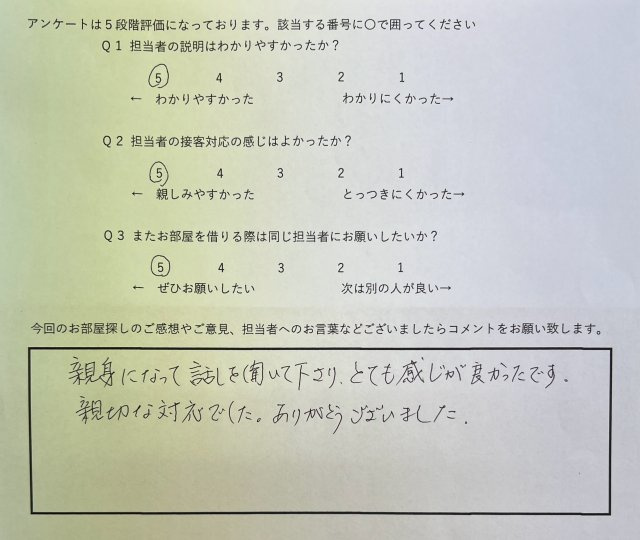 アンケートは５段階評価になっております。該当する番号に〇で囲ってください
Ｑ１ 担当者の説明はわかりやすかったか？
5 4 3 2 1
← わかりやすかった わかりにくかった→
Ｑ２ 担当者の接客対応の感じはよかったか？
5 4 3 2 1
← 親しみやすかった とっつきにくかった→
Ｑ３ またお部屋を借りる際は同じ担当者にお願いしたいか？
5 4 3 2 1
← ぜひお願いしたい 次は別の人が良い→
今回のお部屋探しのご感想やご意見、担当者へのお言葉などございましたらコメントをお願い致します。
親身になって話しを聞いて下さり、とても感じが良かったです。
親切な対応でした。ありがとうございました.